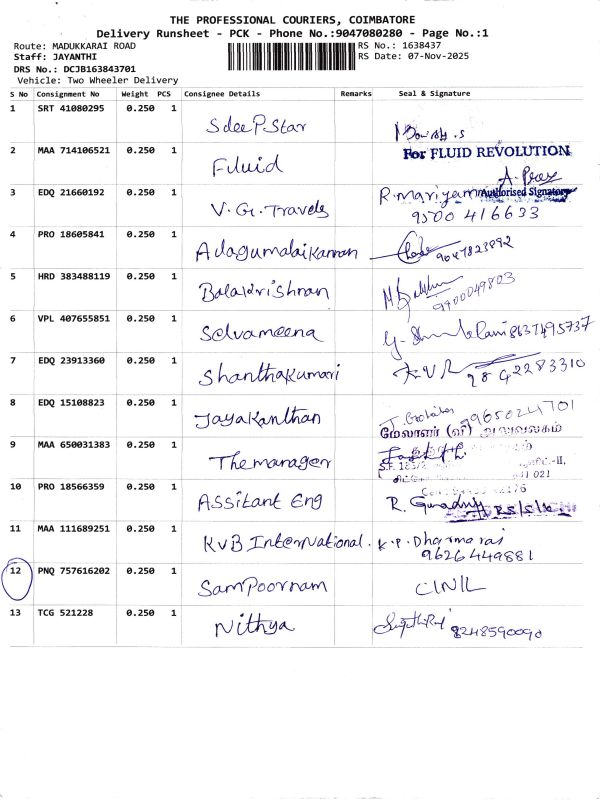 THE PROFESSIONAL COURIERS, COIMBATORE
Delivery Runsheet - PCK - Phone No.:9047080280 - Page No.:1
Route: MADUKKARAI ROAD RS No.: 1638437
Staff: JAYANTHI RS Date: 07-Nov-2025
DRS No.: DCJB163843701
Vehicle: Two Wheeler Delivery
S No Consignment No Weight PCS Consignee Details Remarks Seal & Signature
1 SRT 41080295 0.250 1
SdeePStar
2 MAA 714106521 0.250 1 For FLUID REVOLUTION
Fluid
3 EDQ 21660192 0.250 1 R. Mariyamm Authorised Signatory
V. G. Travels 9500 416633
4 PRO 18605841 0.250 1
Adagumalaikannan 9047823892
5 HRD 383488119 0.250 1
Balakrishnan 9900049803
6 VPL 407655851 0.250 1
Selvameena 8637495737
7 EDQ 23913360 0.250 1
Shanthakumari
8 EDQ 15108823 0.250 1
Jayakanthan 9965024701
9 MAA 650031383 0.250 1 மேலாளர் (வி) அலுவலகம்
The manager
10 PRO 18566359 0.250 1
Assitant Eng R.
11 MAA 111689251 0.250 1
KVB International. K. P. Dharmaraj
9626449881
12 PNQ 757616202 0.250 1
Sampoornam
13 TCG 521228 0.250 1
Nithya 8248590090